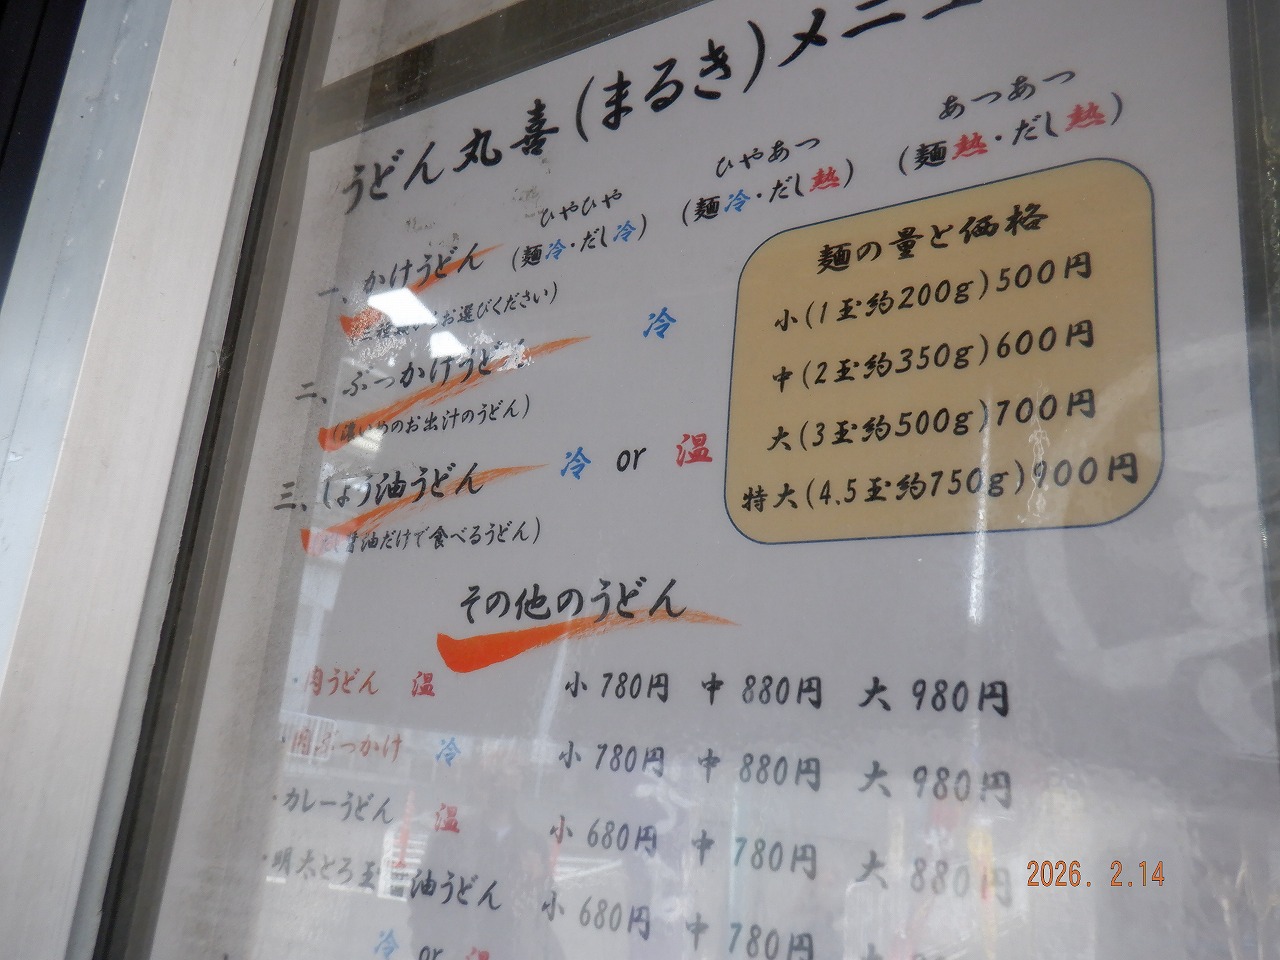 うどん丸喜(まるき)メニュー
ひやひや ひやあつ あつあつ
一、かけうどん (麺冷・だし冷) (麺冷・だし熱) (麺熱・だし熱)
お選びください)
二、ぶっかけうどん 冷
(濃いめのお出汁のうどん)
三、しょう油うどん 冷 or 温
醤油だけで食べるうどん)
麺の量と価格
小(1玉約200g)500円
中(2玉約350g)600円
大(3玉約500g)700円
特大(4.5玉約750g)900円
その他のうどん
・肉うどん 温 小 780円 中 880円 大 980円
・肉ぶっかけ 冷 小 780円 中 880円 大 980円
・カレーうどん 温 小 680円 中 780円 大 880円
・明太とろ玉醤油うどん 小 680円 中 780円
冷 or 温
2026. 2.14